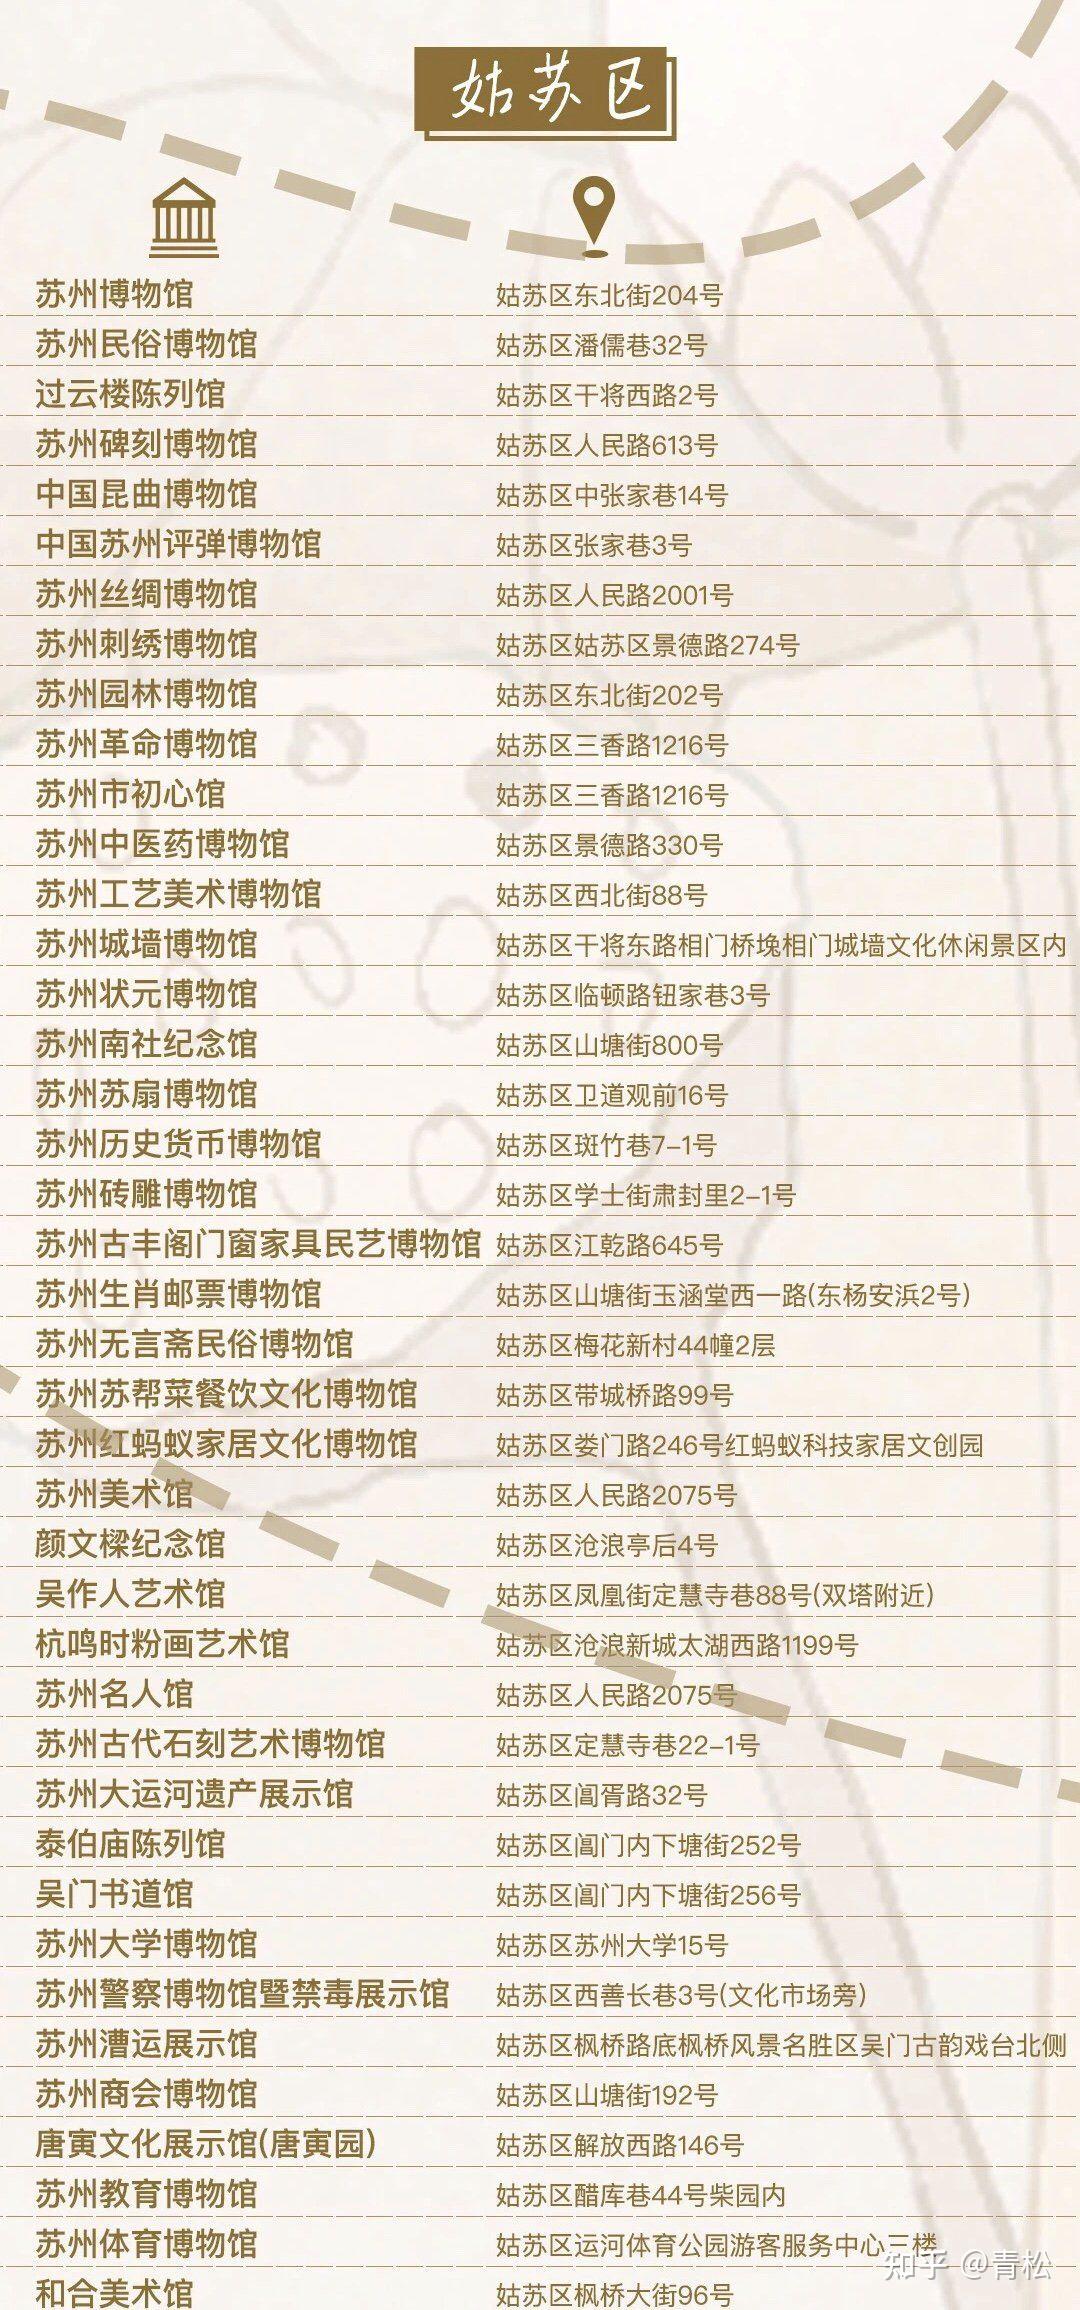 姑苏区
苏州博物馆 姑苏区东北街204号
苏州民俗博物馆 姑苏区潘儒巷32号
过云楼陈列馆 姑苏区干将西路2号
苏州碑刻博物馆 姑苏区人民路613号
中国昆曲博物馆 姑苏区中张家巷14号
中国苏州评弹博物馆 姑苏区张家巷3号
苏州丝绸博物馆 姑苏区人民路2001号
苏州刺绣博物馆 姑苏区姑苏区景德路274号
苏州园林博物馆 姑苏区东北街202号
苏州革命博物馆 姑苏区三香路1216号
苏州市初心馆 姑苏区三香路1216号
苏州中医药博物馆 姑苏区景德路330号
苏州工艺美术博物馆 姑苏区西北街88号
苏州城墙博物馆 姑苏区干将东路相门桥堍相门城墙文化休闲景区内
苏州状元博物馆 姑苏区临顿路钮家巷3号
苏州南社纪念馆 姑苏区山塘街800号
苏州苏扇博物馆 姑苏区卫道观前16号
苏州历史货币博物馆 姑苏区斑竹巷7-1号
苏州砖雕博物馆 姑苏区学士街肃封里2-1号
苏州古丰阁门窗家具民艺博物馆 姑苏区江乾路645号
苏州生肖邮票博物馆 姑苏区山塘街玉涵堂西一路(东杨安浜2号)
苏州无言斋民俗博物馆 姑苏区梅花新村44幢2层
苏州苏帮菜餐饮文化博物馆 姑苏区带城桥路99号
苏州红蚂蚁家居文化博物馆 姑苏区娄门路246号红蚂蚁科技家居文创园
苏州美术馆 姑苏区人民路2075号
颜文樑纪念馆 姑苏区沧浪亭后4号
吴作人艺术馆 姑苏区凤凰街定慧寺巷88号(双塔附近)
杭鸣时粉画艺术馆 姑苏区沧浪新城太湖西路1199号
苏州名人馆 姑苏区人民路2075号
苏州古代石刻艺术博物馆 姑苏区定慧寺巷22-1号
苏州大运河遗产展示馆 姑苏区阊胥路32号
泰伯庙陈列馆 姑苏区阊门内下塘街252号
吴门书道馆 姑苏区阊门内下塘街256号
苏州大学博物馆 姑苏区苏州大学15号
苏州警察博物馆暨禁毒展示馆 姑苏区西善长巷3号(文化市场旁)
苏州漕运展示馆 姑苏区枫桥路底枫桥风景名胜区吴门古韵戏台北侧
苏州商会博物馆 姑苏区山塘街192号
唐寅文化展示馆(唐寅园) 姑苏区解放西路146号
苏州教育博物馆 姑苏区醋库巷44号柴园内
苏州体育博物馆 姑苏区运河体育公园游客服务中心三楼
知乎 @青松
和合美术馆 姑苏区枫桥大街96号